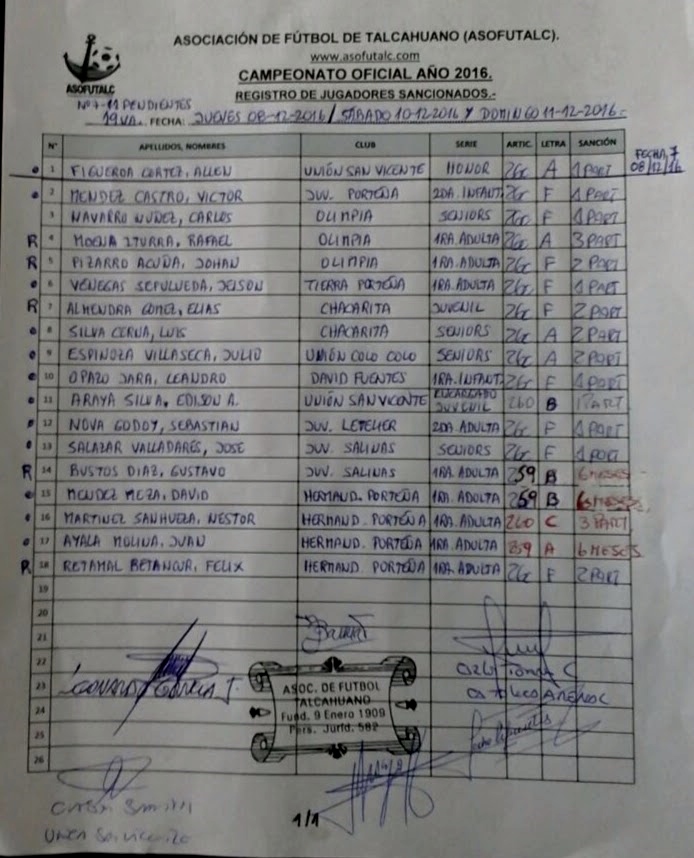 ASOCIACIÓN DE FÚTBOL DE TALCAHUANO (ASOFUTALC).
www.asofutalc.com
CAMPEONATO OFICIAL AÑO 2016.
REGISTRO DE JUGADORES SANCIONADOS.-
ASOFUTALC
Nº 7-11 PENDIENTES
19VA. FECHA: JUEVES 08-12-2016 / SÁBADO 10-12-2016 Y DOMINGO 11-12-2016.-
Nº APELLIDOS, NOMBRES CLUB SERIE ARTIC. LETRA SANCIÓN
FECHA 7
08/12/16
1 FIGUEROA CORTEZ, ALLEN UNIÓN SAN VICENTE HONOR 26C A 1 PART
2 MENDEZ CASTRO, VICTOR JUV. PORTEÑA 2DA. INFANT. 26C F 1 PART
3 NAVARRO NUÑEZ, CARLOS OLIMPIA SENIORS 26C F 1 PART
R 4 MOENA ITURRA, RAFAEL OLIMPIA 1RA. ADULTA 26C A 3 PART
R 5 PIZARRO ACUÑA, JOHAN OLIMPIA 1RA. ADULTA 26C F 2 PART
6 VENEGAS SEPULVEDA, JEISON TIERRA PORTEÑA 1RA. ADULTA 26C F 1 PART
R 7 ALMENDRA GOMEZ, ELIAS CHACARITA JUVENIL 26C F 2 PART
8 SILVA CERNA, LUIS CHACARITA SENIORS 26C A 2 PART
9 ESPINOZA VILLASECA, JULIO UNIÓN COLO COLO SENIORS 26C A 2 PART
10 OPAZO JARA, LEANDRO DAVID FUENTES 1RA. INFANT. 26C F 1 PART
11 ARAYA SILVA, EDISON A. UNIÓN SAN VICENTE ENCARGADO JUVENIL 260 B 1 PART
12 NOVA GODOY, SEBASTIAN JUV. LETELIER 2DA. ADULTA 26C F 1 PART
13 SALAZAR VALLADARES, JOSE JUV. SALINAS SENIORS 26C F 1 PART
R 14 BUSTOS DIAZ, GUSTAVO JUV. SALINAS 1RA. ADULTA 259 B 6 MESES
15 MENDEZ MEZA, DAVID HERMAND. PORTEÑA 1RA. ADULTA 259 B 6 MESES
16 MARTINEZ SANHUEZA, NESTOR HERMAND. PORTEÑA 1RA. ADULTA 260 C 3 PART
17 AYALA MOLINA, JUAN HERMAND. PORTEÑA 1RA. ADULTA 259 A 6 MESES
R 18 RETAMAL BETANCUR, FELIX HERMAND. PORTEÑA 1RA. ADULTA 26C F 2 PART
19
20
21
22
23
24
25
26
ASOC. DE FUTBOL
TALCAHUANO
Fund. 9 Enero 1909
Pers. Jurid. 582
1/1